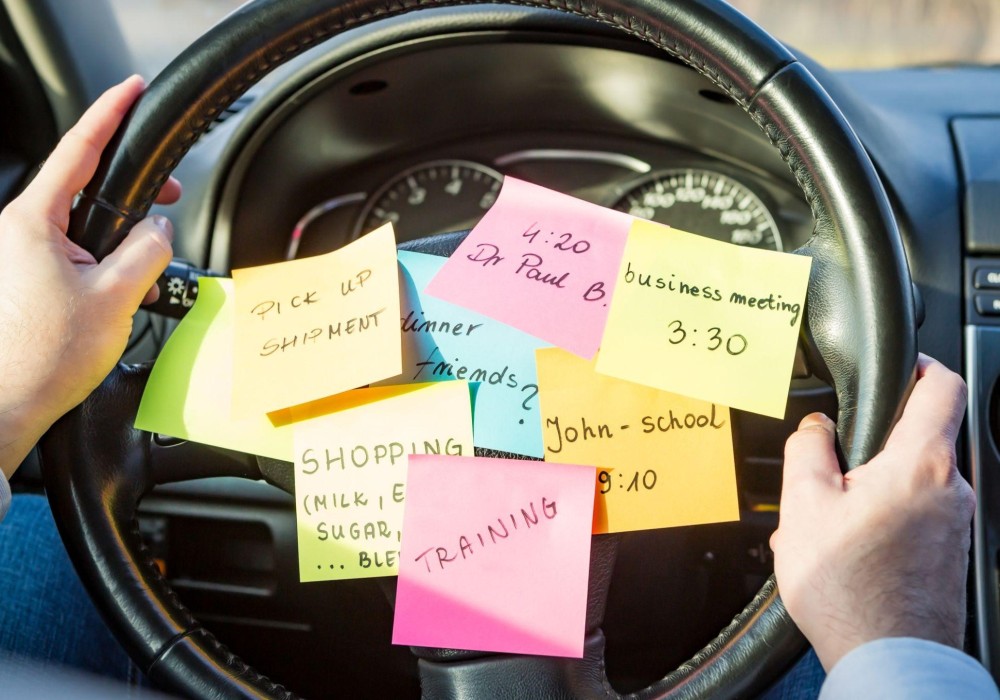 4:20
Dr Paul B.
business meeting
3:30
PICK UP
SHIPMENT
dinner
friends?
John - school
9:10
SHOPPING
(MILK,
SUGAR,
...
TRAINING